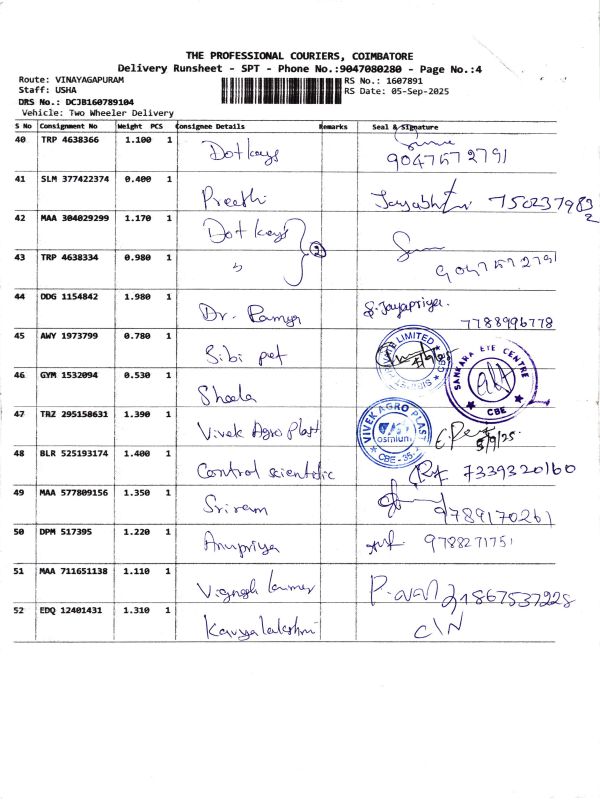 THE PROFESSIONAL COURIERS, COIMBATORE
Delivery Runsheet - SPT - Phone No.:9047080280 - Page No.:4
Route: VINAYAGAPURAM RS No.: 1607891
Staff: USHA RS Date: 05-Sep-2025
DRS No.: DCJB160789104
Vehicle: Two Wheeler Delivery
S No Consignment No Weight PCS Consignee Details Remarks Seal & Signature
40 TRP 4638366 1.100 1 Dotkeys 9047572791
41 SLM 377422374 0.400 1 Preethi 7502379832
42 MAA 304029299 1.170 1 Dot keys
43 TRP 4638334 0.980 1 " 2 9047572791
44 DDG 1154842 1.980 1 Dr. Ramya S. Jayapriya. 7788996778
45 AWY 1973799 0.780 1 Bibi pet LIMITED CBE
46 GYM 1532094 0.530 1 Sheela SANKARA EYE CENTRE CBE
47 TRZ 295158631 1.390 1 Vivek Agro Plast VIVEK AGRO PLAST osmium CBE - 35. 5/9/25.
48 BLR 525193174 1.400 1 Control scientific 7339320160
49 MAA 577809156 1.350 1 Sriram 9789170261
50 DPM 517395 1.220 1 Anupriya 9788271751
51 MAA 711651138 1.110 1 Vignesh kumar 8675537228
52 EDQ 12401431 1.310 1 Kavyalakshmi C/N